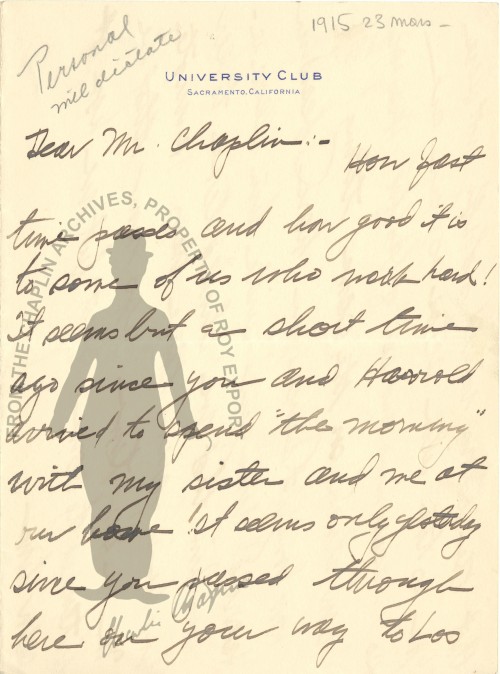 1915 23 mars -
Personal
will dictate
UNIVERSITY CLUB
SACRAMENTO, CALIFORNIA
Dear Mr. Chaplin:-
How fast
time passes and how good it is
to some of us who work hard!
it seems but a short time
ago since you and Harrold
arrived to spend "the morning"
with my sister and me at
our home! It seems only yesterday
since you passed through
here on your way to Los
FROM THE CHAPLIN ARCHIVES, PROPERTY OF ROY EXPORT
Charlie Chaplin